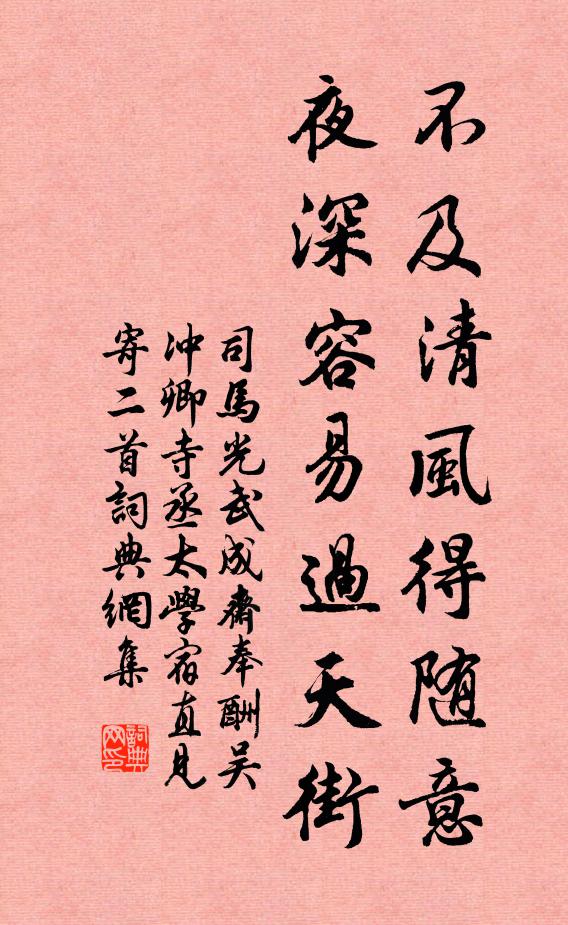 不及清風得随意
夜深容易過天街
司馬光武成齋奉酬吴
冲卿寺丞太學宿直見
寄二首詞典網集
詞典网印